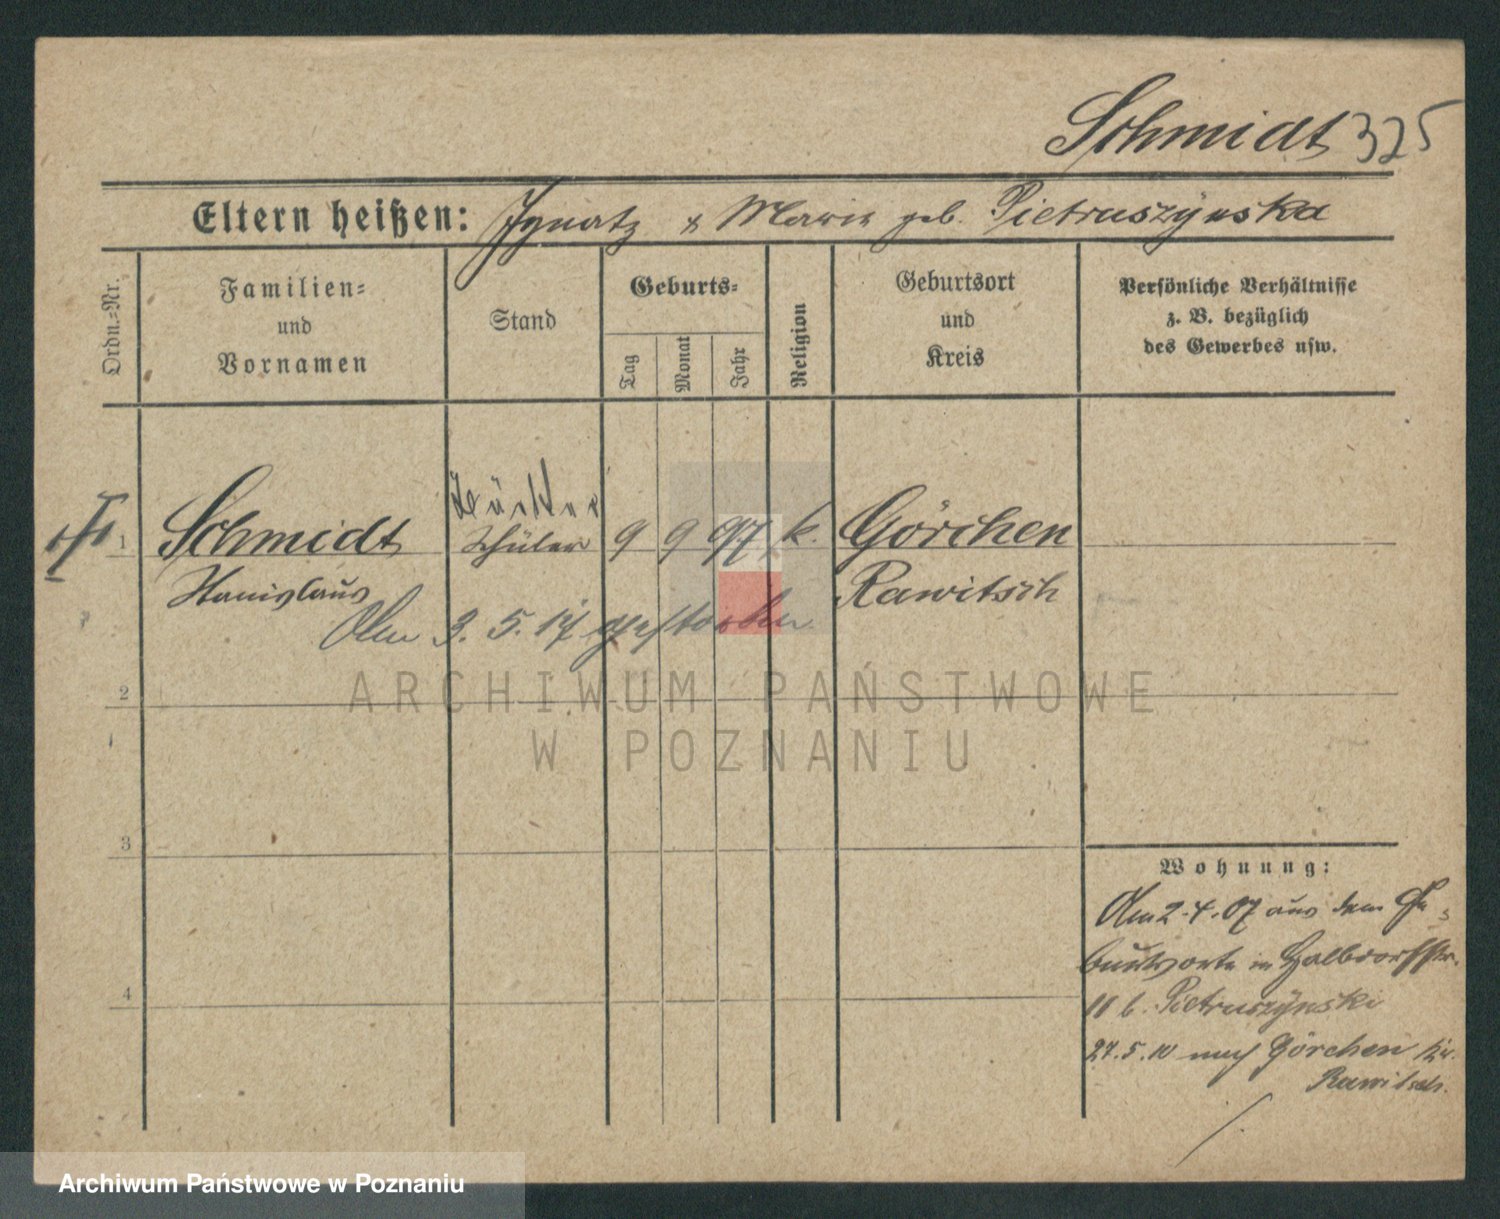 Schmidt 325
Eltern heißen: Ignatz & Marie geb. Pietruszynska
Ordn.=Nr.
Familien=
und
Vornamen
Stand
Geburts=
Tag
Monat
Jahr
Religion
Geburtsort
und
Kreis
Persönliche Verhältnisse
z. B. bezüglich
des Gewerbes usw.
1 Schmidt Schüler 9 9 97 k. Görchen
Stanislaus Rawitsch
Am 3. 5. 17 gestorben
2
3
4
Wohnung:
Am 2.4.07 aus dem Ge=
burtsorte in Halbdorfstr.
11 b. Pietruszynski
27.5.10 nach Görchen Kr.
Rawitsch.
ARCHIWUM PAŃSTWOWE
W POZNANIU
Archiwum Państwowe w Poznaniu